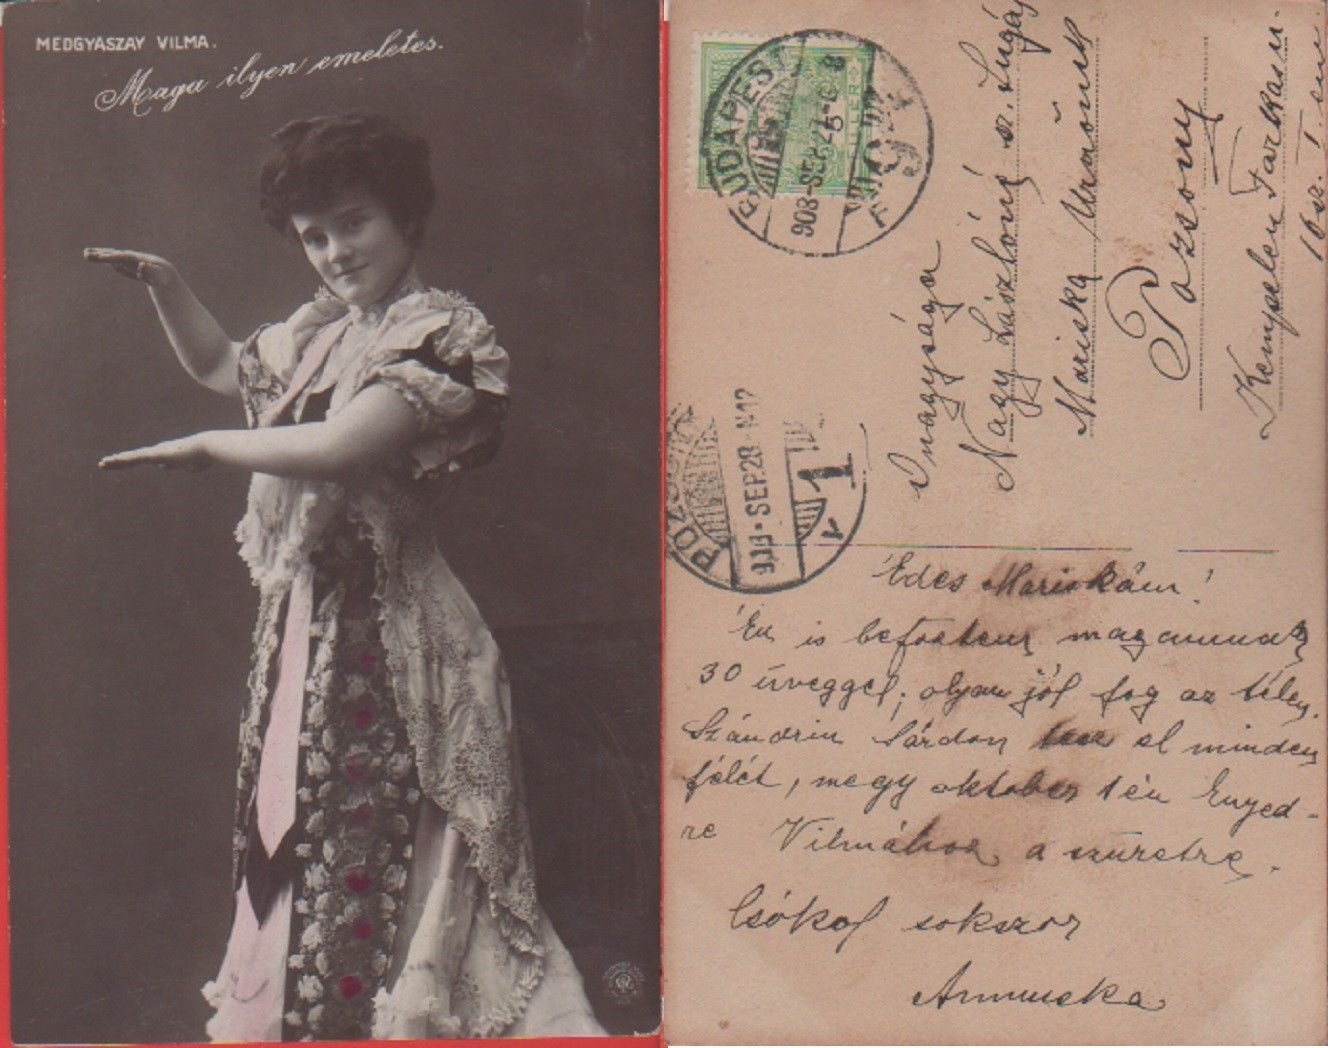 MEDGYASZAY VILMA.
Maga ilyen emeletes.
BUDAPEST
908-SEP.27
6
F
FILLÉR
POZSONY
908-SEP.28-N12
1
Nagysága
Nagy Lászlóné
Mariska
Pozsony
Kempelen Farkas u.
Édes Mariskám!
Én is befőztem magamnak
30 üveggel; olyan jól fog az télen.
Szándrin Sárdon tesz el minden
félét, megy október 1én Enyed-
re Vilmához a szüretre.
Csókol sokszor
Annuska